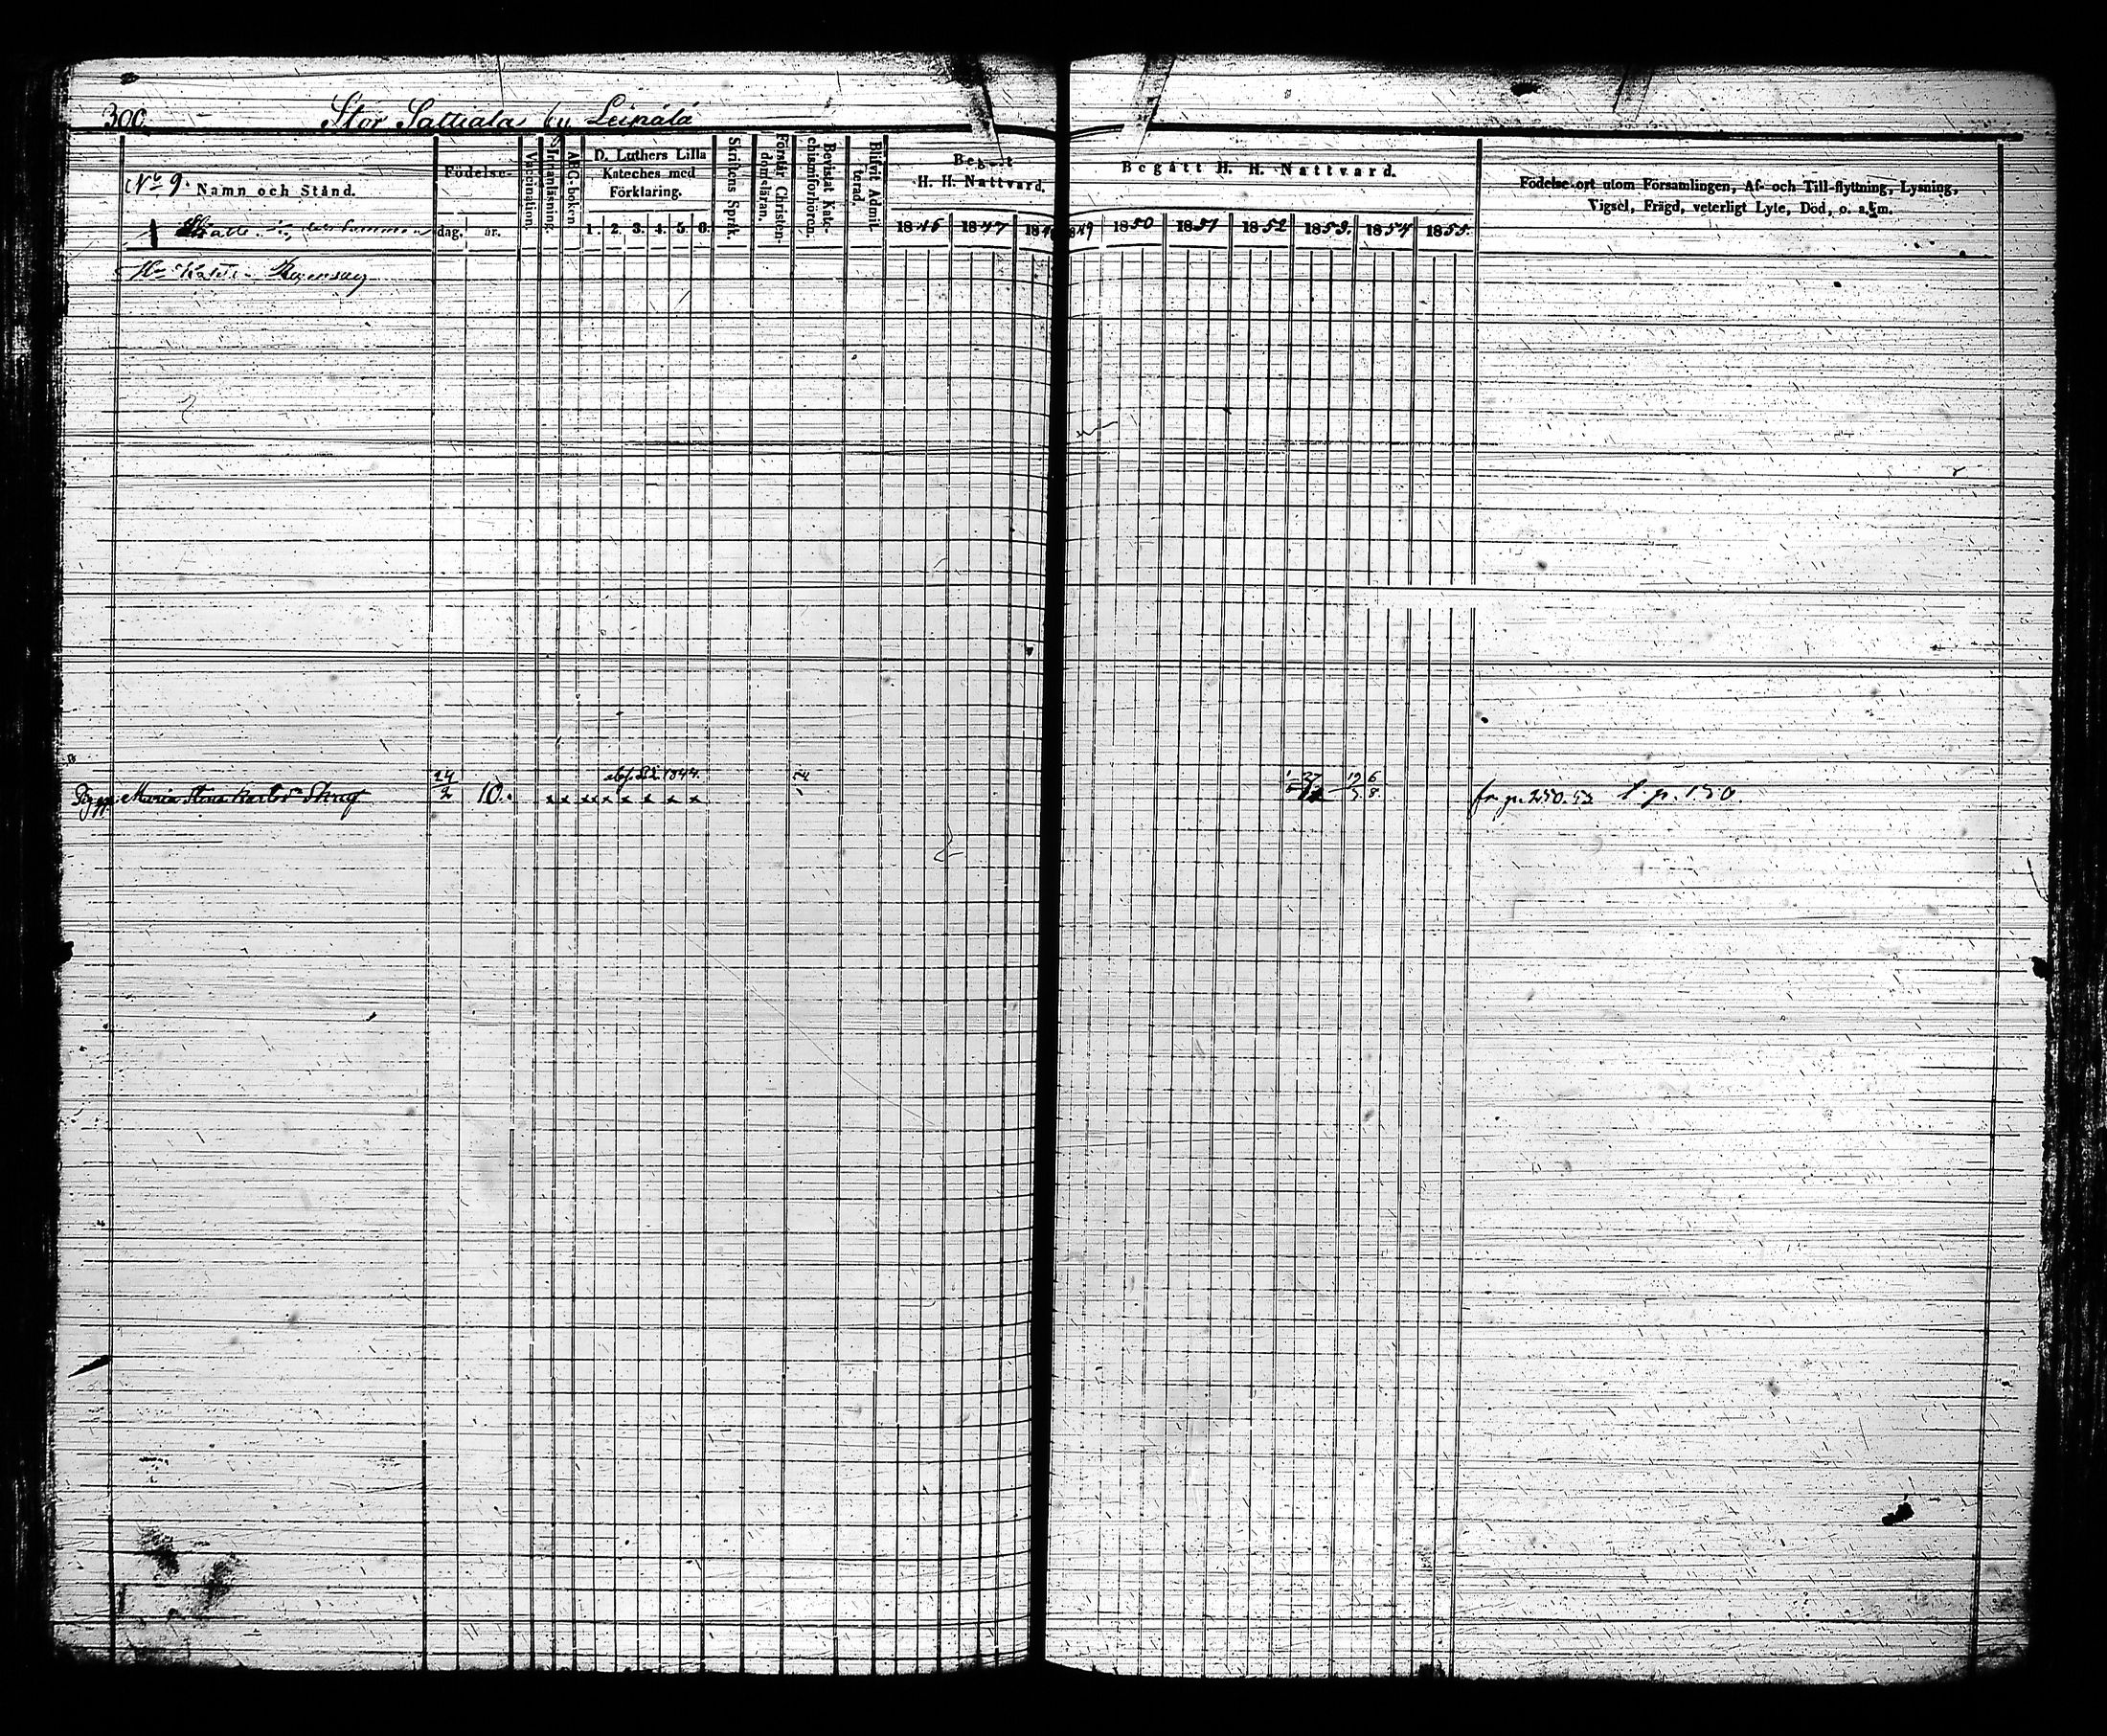 300. Stor Sattiala by Leinälä
N:o 9. Namn och Stånd.
Födelse-
dag. år.
Vaccination.
Innanläsning.
ABC-boken
D. Luthers Lilla
Kateches med
Förklaring.
1. 2. 3. 4. 5. 6.
Skriftens Språk.
Förstår Christen-
domsläran.
Bevisat Kate-
chismiförhören.
Blifvit Admit-
terad.
Begått
H. H. Nattvard.
1846 1847 184
Begått H. H. Nattvard.
1849 1850 1851 1852 1853. 1854 1855.
Födelse-ort utom Församlingen, Af- och Till-flyttning, Lysning,
Vigsel, Frägd, veterligt Lyte, Död, o. a. m.
1
Pig. Maria Stina Karlsd:r 24/2 10. x x x x x x x x x 1844. 19/3 6/8. fr p. 250. 53 t p. 150.